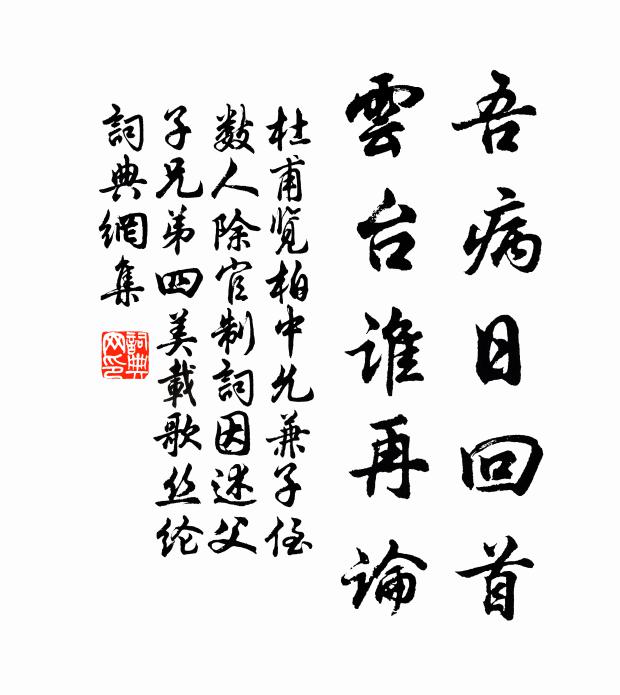 吾病日回首
雲台谁再論
杜甫览柏中允兼子侄
数人除官制詞因述父
子兄弟四美載歌丝纶
詞典網集
詞典
网印